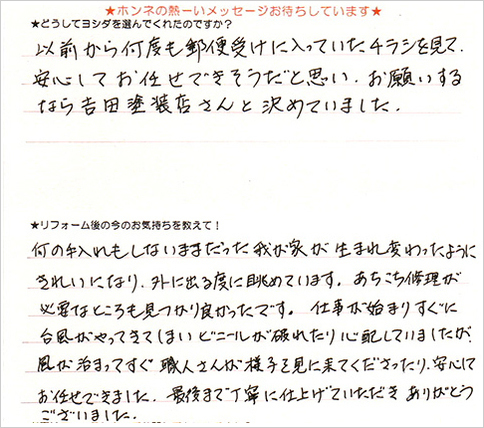 ★ホンネの熱ーいメッセージお待ちしています★
★どうしてヨシダを選んでくれたのですか？
以前から何度も郵便受けに入っていたチラシを見て、
安心してお任せできそうだと思い、お願いする
なら吉田塗装店さんと決めていました。
★リフォーム後の今のお気持ちを教えて！
何の手入れもしないままだった我が家が生まれ変わったように
きれいになり、外に出る度に眺めています。あちこち修理が
必要なところも見つかり良かったです。仕事が始まりすぐに
台風がやってきてしまいビニールが破れたり心配していましたが、
風が治まってすぐ職人さんが様子を見に来てくださったり、安心して
お任せできました。最後まで丁寧に仕上げていただきありがとう
ございました。